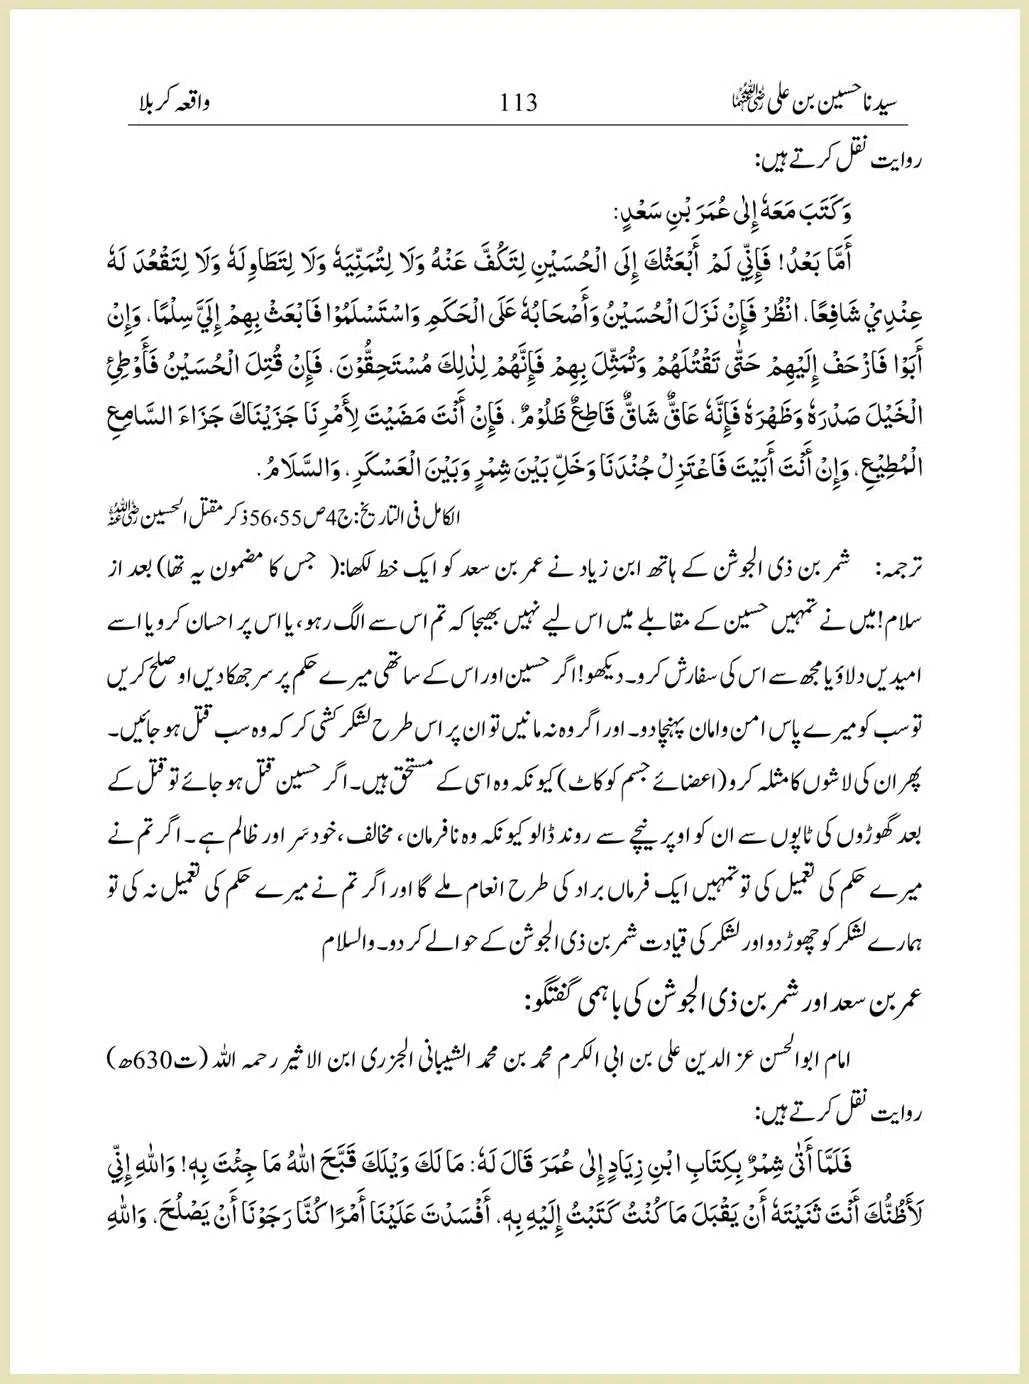 سیدنا حسین بن علی رضی اللہ عنہما 113 واقعہ کربلا
روایت نقل کرتے ہیں:
وَكَتَبَ مَعَهٗ إِلٰى عُمَرَ بْنِ سَعْدٍ:
أَمَّا بَعْدُ! فَإِنِّيْ لَمْ أَبْعَثْكَ إِلَى الْحُسَيْنِ لِتَكُفَّ عَنْهُ وَلَا لِتُمَنِّيَهٗ وَلَا لِتَطَاوِلَهٗ وَلَا لِتَقْعُدَ لَهٗ
عِنْدِيْ شَافِعًا، انْظُرْ فَإِنْ نَزَلَ الْحُسَيْنُ وَأَصْحَابُهٗ عَلَى الْحَكَمِ وَاسْتَسْلَمُوْا فَابْعَثْ بِهِمْ إِلَيَّ سِلْمًا، وَإِنْ
أَبَوْا فَازْحَفْ إِلَيْهِمْ حَتّٰى تَقْتُلَهُمْ وَتُمَثِّلَ بِهِمْ فَإِنَّهُمْ لِذٰلِكَ مُسْتَحِقُّوْنَ، فَإِنْ قُتِلَ الْحُسَيْنُ فَأَوْطِئِ
الْخَيْلَ صَدْرَهٗ وَظَهْرَهٗ فَإِنَّهٗ عَاقٌّ شَاقٌّ قَاطِعٌ ظَلُوْمٌ، فَإِنْ أَنْتَ مَضَيْتَ لِأَمْرِنَا جَزَيْنَاكَ جَزَاءَ السَّامِعِ
الْمُطِيْعِ، وَإِنْ أَنْتَ أَبَيْتَ فَاعْتَزِلْ جُنْدَنَا وَخَلِّ بَيْنَ شِمْرٍ وَبَيْنَ الْعَسْكَرِ، وَالسَّلَامُ.
الکامل فی التاریخ: ج4 ص55،56 ذکر مقتل الحسین رضی اللہ عنہ
ترجمہ: شمر بن ذی الجوشن کے ہاتھ ابن زیاد نے عمر بن سعد کو ایک خط لکھا:( جس کا مضمون یہ تھا) بعد از
سلام! میں نے تمہیں حسین کے مقابلے میں اس لیے نہیں بھیجا کہ تم اس سے الگ رہو، یا اس پر احسان کرو یا اسے
امیدیں دلاؤ یا مجھ سے اس کی سفارش کرو۔ دیکھو! اگر حسین اور اس کے ساتھی میرے حکم پر سر جھکا دیں او صلح کریں
تو سب کو میرے پاس امن و امان پہنچا دو۔ اور اگر وہ نہ مانیں تو ان پر اس طرح لشکر کشی کر کہ وہ سب قتل ہو جائیں۔
پھر ان کی لاشوں کا مثلہ کرو (اعضائے جسم کو کاٹ) کیونکہ وہ اسی کے مستحق ہیں۔ اگر حسین قتل ہو جائے تو قتل کے
بعد گھوڑوں کی ٹاپوں سے ان کو اوپر نیچے سے روند ڈالو کیونکہ وہ نافرمان، مخالف، خود سَر اور ظالم ہے۔ اگر تم نے
میرے حکم کی تعمیل کی تو تمہیں ایک فرماں براد کی طرح انعام ملے گا اور اگر تم نے میرے حکم کی تعمیل نہ کی تو
ہمارے لشکر کو چھوڑ دو اور لشکر کی قیادت شمر بن ذی الجوشن کے حوالے کر دو۔ والسلام
عمر بن سعد اور شمر بن ذی الجوشن کی باہمی گفتگو:
امام ابو الحسن عز الدین علی بن ابی الکرم محمد بن محمد الشیبانی الجزری ابن الاثیر رحمہ اللہ (ت630ھ)
روایت نقل کرتے ہیں:
فَلَمَّا أَتٰى شِمْرٌ بِكِتَابِ ابْنِ زِيَادٍ إِلٰى عُمَرَ قَالَ لَهٗ: مَا لَكَ وَيْلَكَ قَبَّحَ اللهُ مَا جِئْتَ بِهٖ! وَاللهِ إِنِّيْ
لَأَظُنُّكَ أَنْتَ ثَنَيْتَهٗ أَنْ يَقْبَلَ مَا كُنْتُ كَتَبْتُ إِلَيْهِ بِهٖ، أَفْسَدْتَ عَلَيْنَا أَمْرًا كُنَّا رَجَوْنَا أَنْ يَصْلُحَ، وَاللهِ